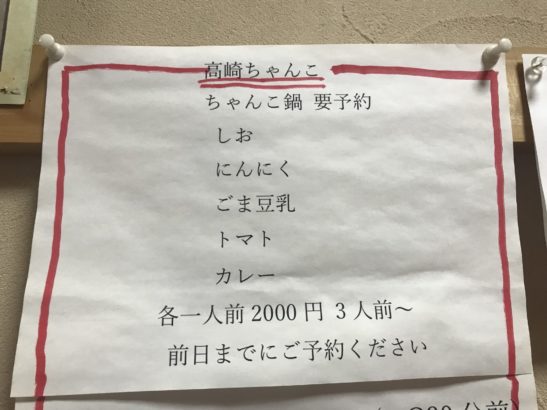 高崎ちゃんこ
ちゃんこ鍋 要予約
しお
にんにく
ごま豆乳
トマト
カレー
各一人前2000円 3人前～
前日までにご予約ください